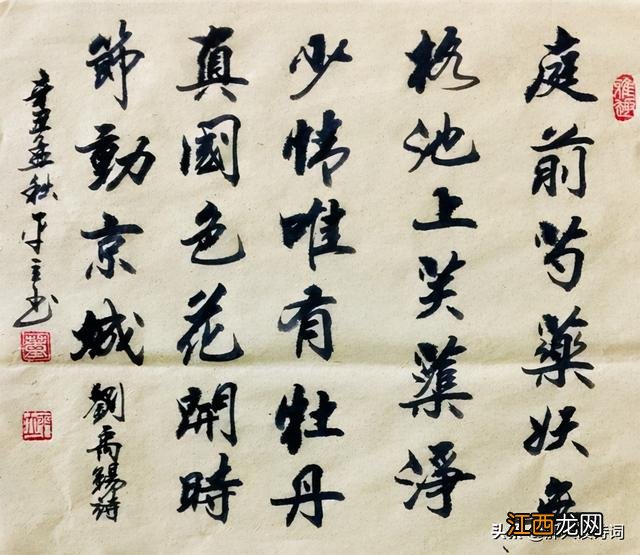 雅趣
庭前芍藥妖無
格池上芙蕖淨
少情唯有牡丹
真國色花開時
節動京城
劉禹錫詩
辛丑孟秋
江西龙网
头条 诗词